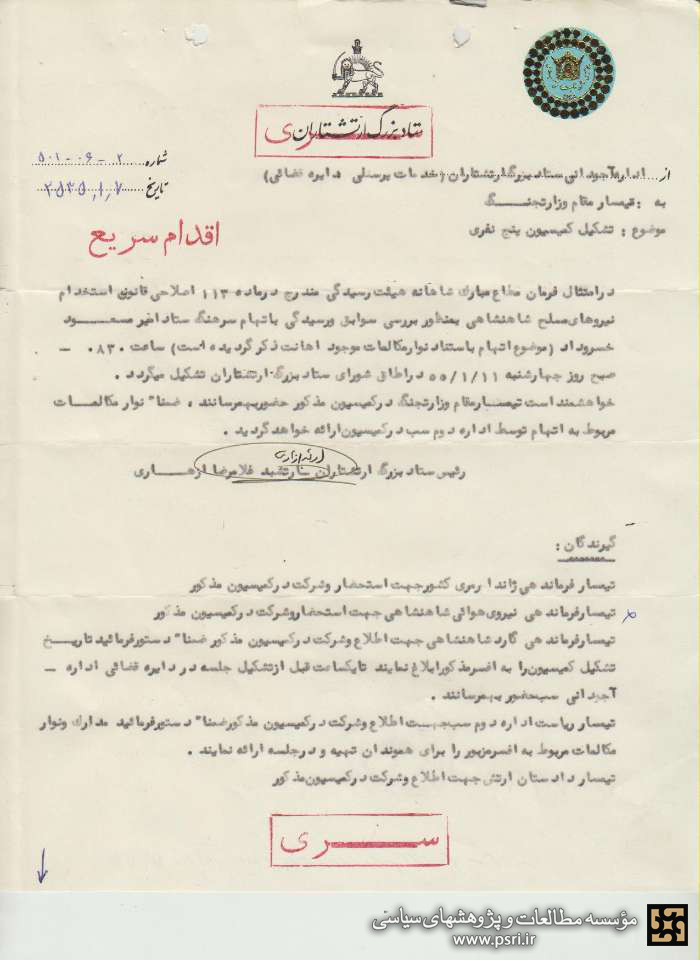 ستاد بزرگ ارتشتاران
سری
شماره ۲-۰۶-۵۰۱
تاریخ ۲۵۳۵/۱/۷
از اداره آجودانی ستاد بزرگ ارتشتاران (خدمات پرسنلی دایره قضائی)
به : تیمسار مقام وزارتجنگ
موضوع : تشکیل کمیسیون پنج نفری
اقدام سریع
در امتثال فرمان مطاع مبارک شاهانه هیئت رسیدگی مندرج در ماده ۱۱۳ اصلاحی قانون استخدام
نیروهای مسلح شاهنشاهی بمنظور بررسی سوابق ورسیدگی باتهام سرهنگ ستاد امیر مسعود
خسروداد (موضوع اتهام باستناد نوار مکالمات موجود اهانت ذکر گردیده است) ساعت ۰۸۳۰ -
صبح روز چهارشنبه ۵۵/۱/۱۱ در اطاق شورای ستاد بزرگ ارتشتاران تشکیل میگردد .
خواهشمند است تیمسار مقام وزارتجنگ در کمیسیون مذکور حضور بهمرسانند ، ضمنا" نوار مکالمات
مربوط به اتهام توسط اداره دوم سب در کمیسیون ارائه خواهد گردید .
رئیس ستاد بزرگ ارتشتاران ارتشبد غلامرضا ازهاری
گیرندگان :
تیمسار فرماندهی ژاندارمری کشور جهت استحضار وشرکت در کمیسیون مذکور
تیمسار فرماندهی نیروی هوائی شاهنشاهی جهت استحضار وشرکت در کمیسیون مذکور
تیمسار فرماندهی گارد شاهنشاهی جهت اطلاع وشرکت در کمیسیون مذکور ضمنا" دستور فرمائید تاریخ
تشکیل کمیسیون را به افسر مذکور ابلاغ نمایند تا یکساعت قبل از تشکیل جلسه در دایره قضائی اداره -
آجودانی سب حضور بهمرسانند .
تیمسار ریاست اداره دوم سب جهت اطلاع وشرکت در کمیسیون مذکور ضمنا" دستور فرمائید مدارک ونوار
مکالمات مربوط به افسر مزبور را برای هموندان تهیه و در جلسه ارائه نمایند .
تیمسار دادستان ارتش جهت اطلاع وشرکت در کمیسیون مذکور
سری
مؤسسه مطالعات و پژوهشهای سیاسی
www.psri.ir